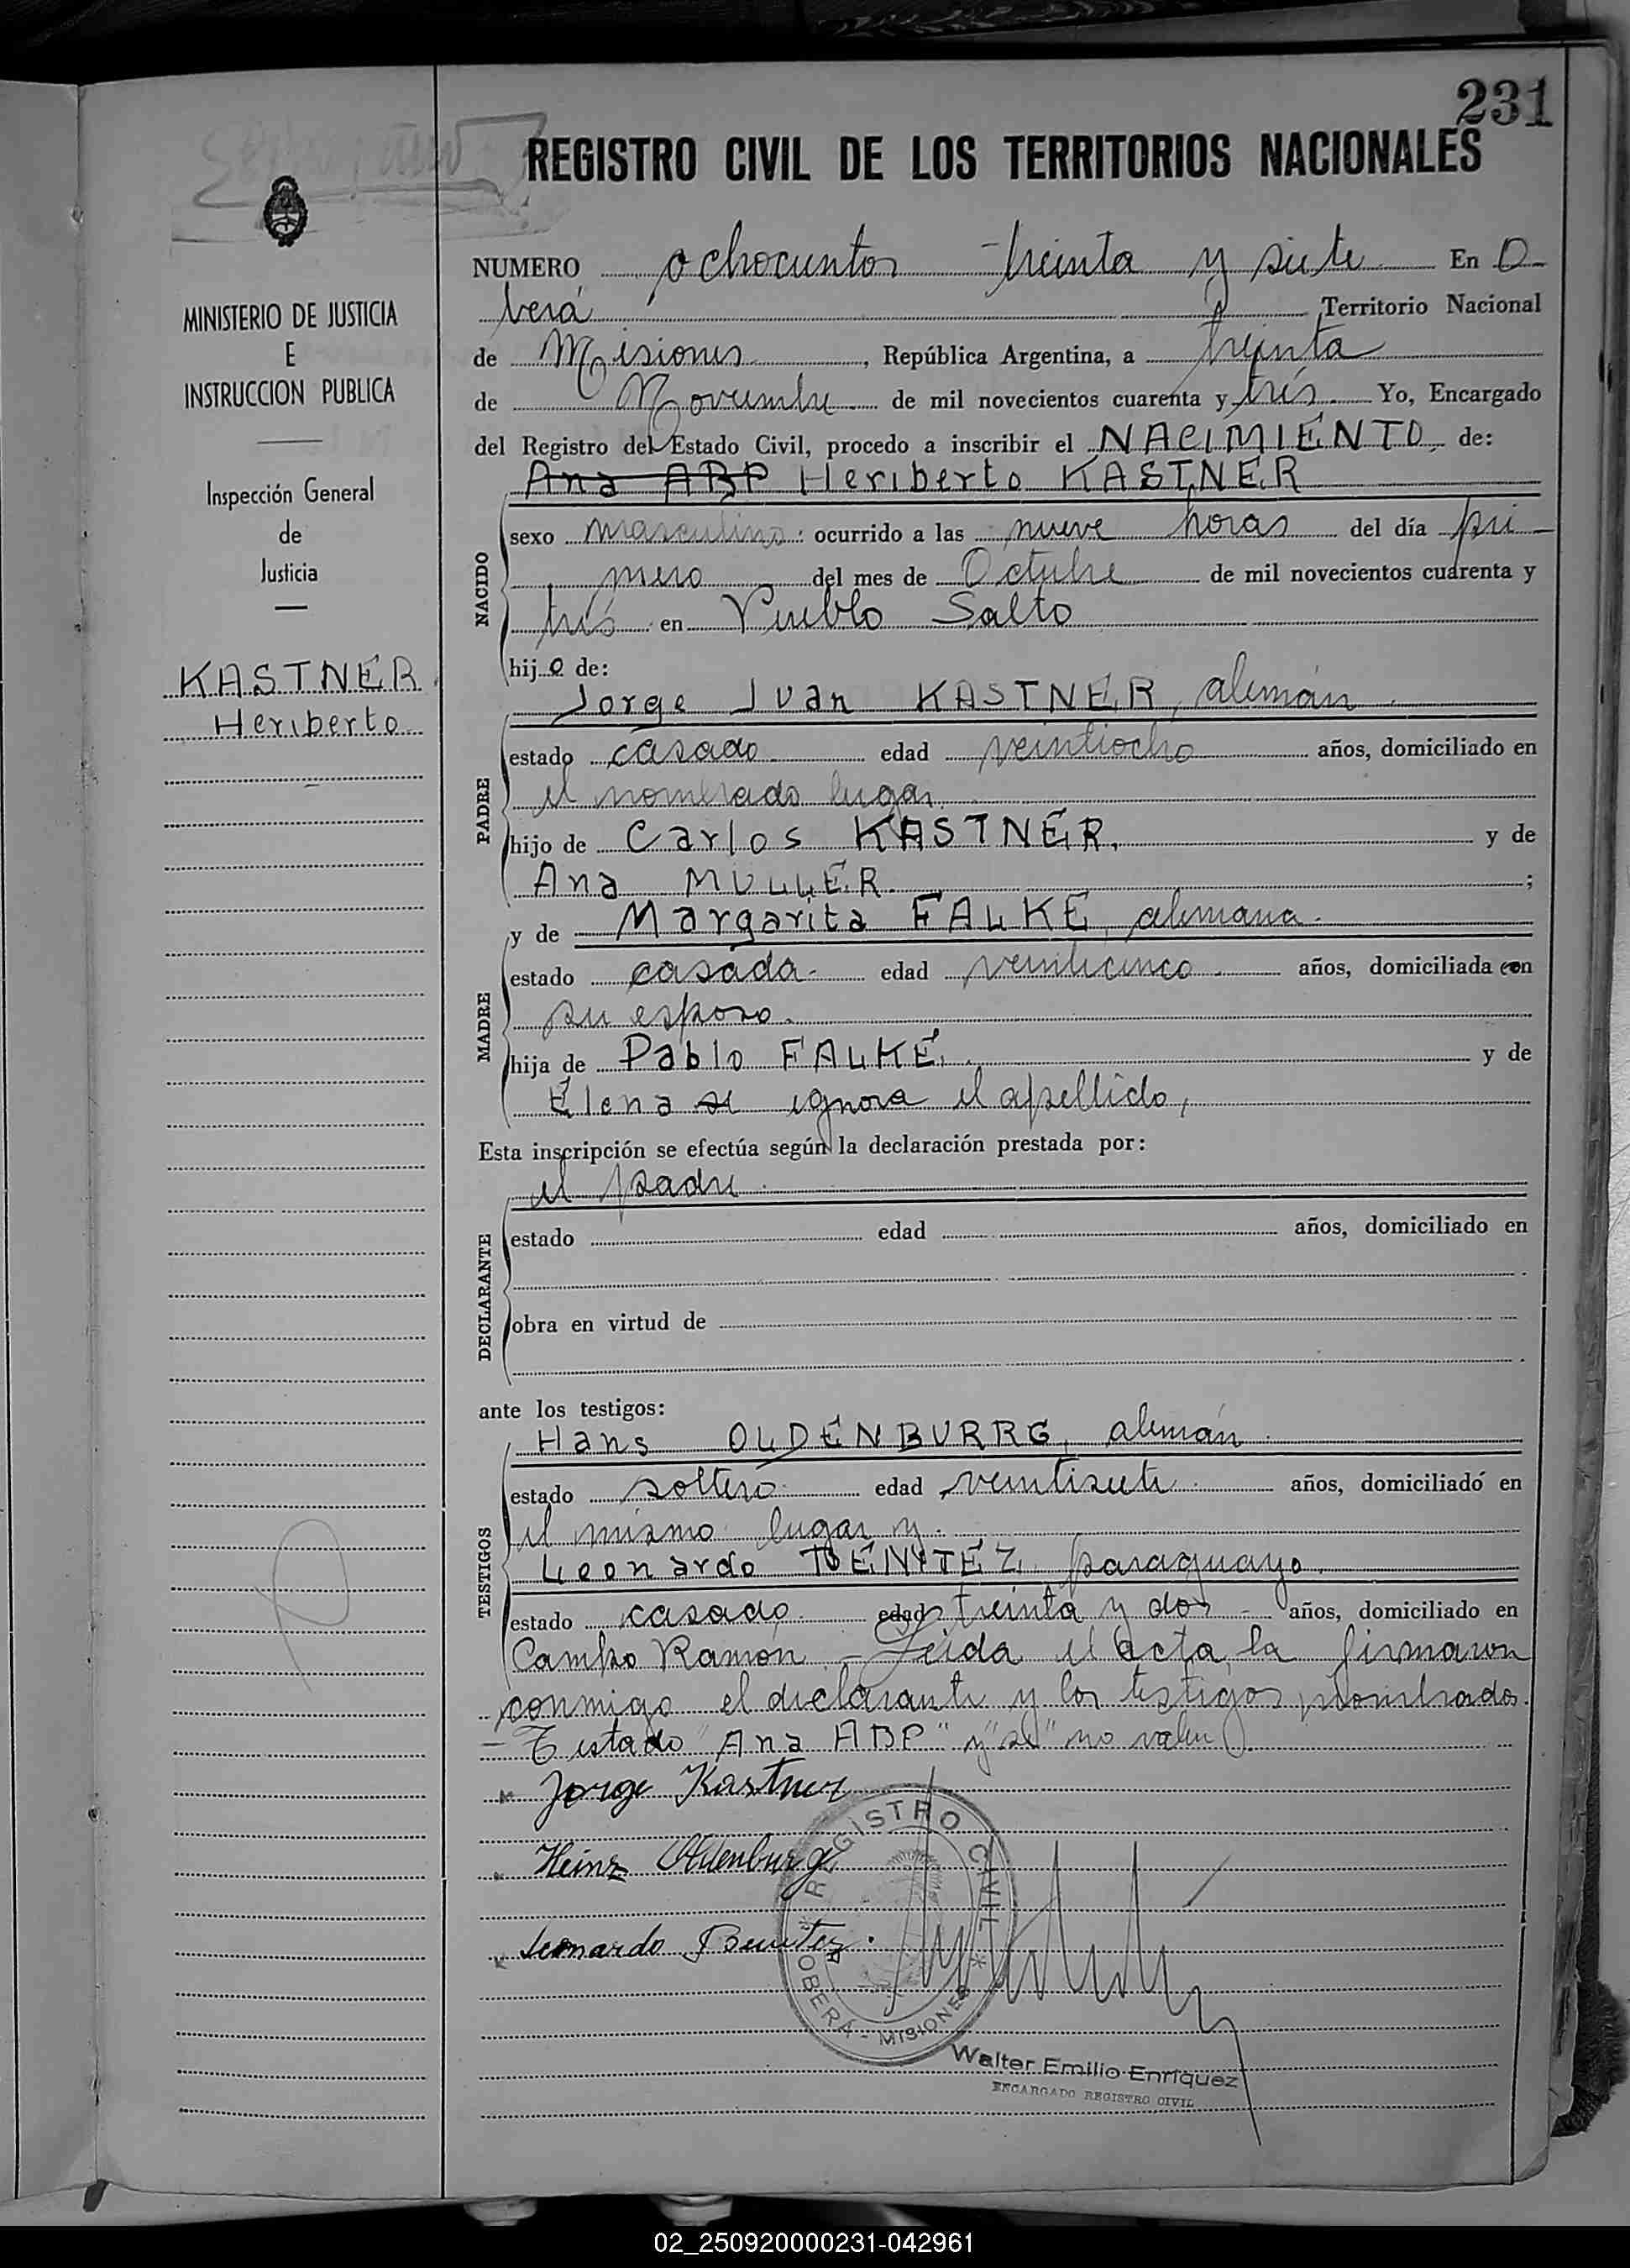 231
REGISTRO CIVIL DE LOS TERRITORIOS NACIONALES
MINISTERIO DE JUSTICIA
E
INSTRUCCION PUBLICA
Inspección General
de
Justicia
KASTNER
Heriberto
NUMERO ochocientos treinta y siete En O-
berá Territorio Nacional
de Misiones, República Argentina, a treinta
de Noviembre de mil novecientos cuarenta y trés. Yo, Encargado
del Registro del Estado Civil, procedo a inscribir el NACIMIENTO de:
Ana ABP Heriberto KASTNER
NACIDO
sexo masculino: ocurrido a las nueve horas del día pri-
mero del mes de Octubre de mil novecientos cuarenta y
trés en Pueblo Salto
hijo de:
Jorge Juan KASTNER, alemán.
PADRE
estado casado edad veintiocho años, domiciliado en
el nombrado lugar.
hijo de Carlos KASTNER, y de
Ana MULLER. ;
y de Margarita FALKE, alemana.
MADRE
estado casada- edad veinticinco. años, domiciliada con
su esposo.
hija de Pablo FALKE, y de
Elena se ignora el apellido,
Esta inscripción se efectúa según la declaración prestada por:
el padre.
DECLARANTE
estado edad años, domiciliado en
obra en virtud de
ante los testigos:
Hans OLDENBURRG, alemán.
TESTIGOS
estado soltero. edad veintisiete. años, domiciliado en
el mismo lugar y.
Leonardo BENITEZ, paraguayo.
estado casado. edad treinta y dos - años, domiciliado en
Campo Ramón.- Leida el acta, la firmaron
conmigo el declarante y los testigos nombrados.
- Testado "Ana ABP" y "se" no valen.
Jorge Kastner
Heinz Oldenburg
Leonardo Benitez.
REGISTRO CIVIL
* OBERA - MISIONES *
Walter Emilio Enriquez
ENCARGADO REGISTRO CIVIL
02_250920000231-042961